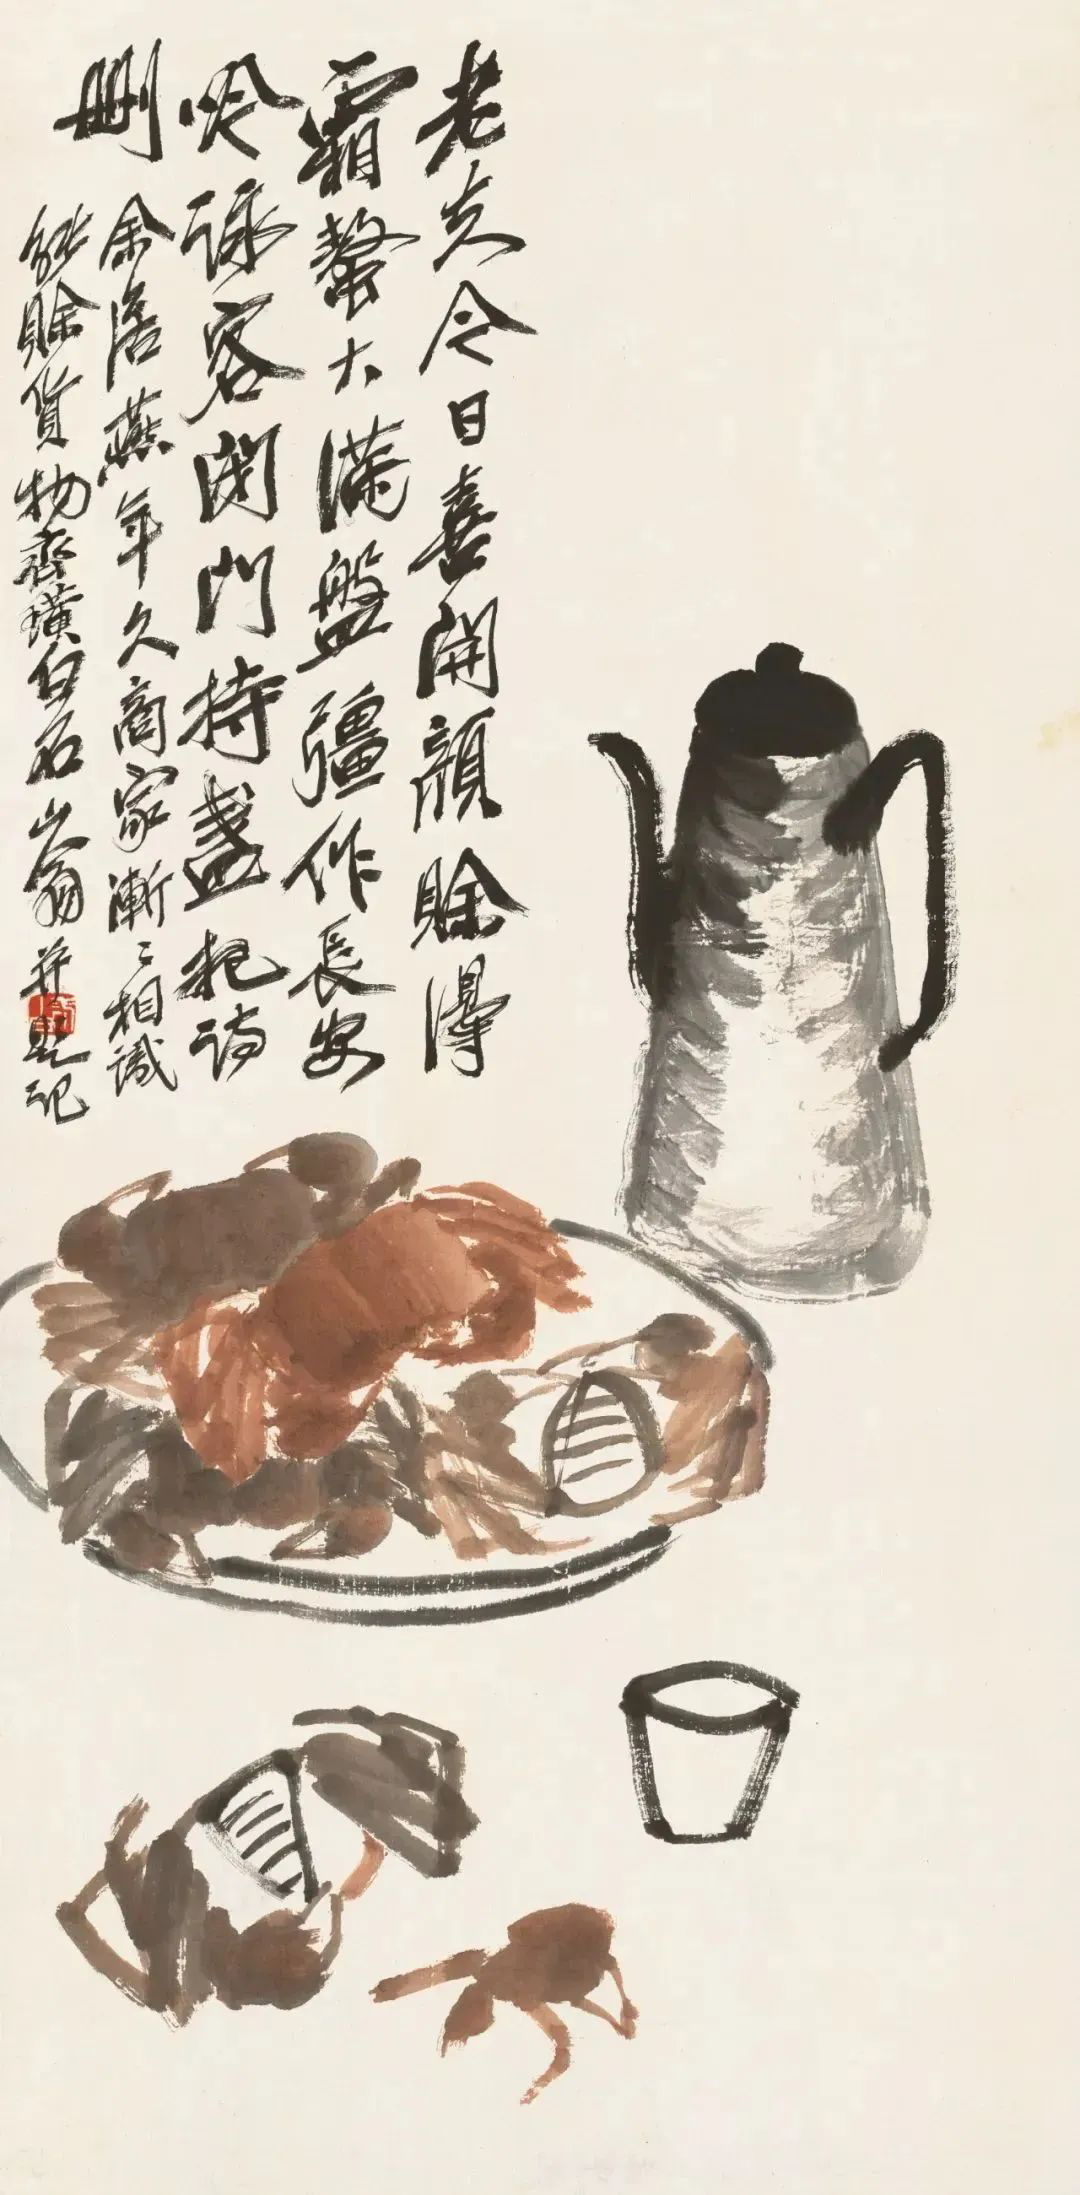 老夫今日喜開顏賒得
霜螯大滿盤彊作長安
吟詠客閉門持盞把詩
刪
余居燕年久商家漸〻相識
能賒貨物齊璜白石山翁并題記